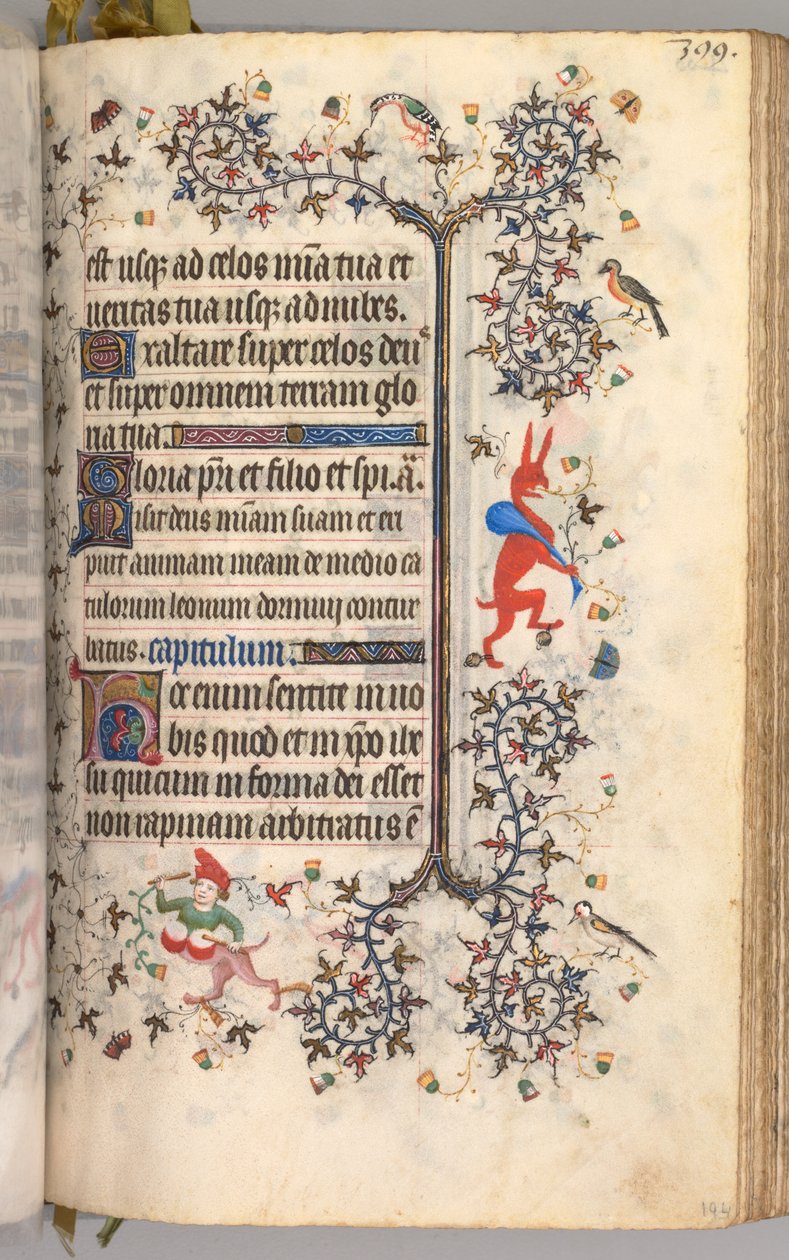 399.
est usq; ad celos mīa tua et
ueritas tua usq; ad nubes.
Exaltare super celos deus
et super omnem terram glo
ria tua.
Gloria pri et filio et spi. a.
Misit deus miam suam et eri
puit animam meam de medio ca
tulorum leonum dormiuij contur
batus. capitulum.
Hoc enim sentite in uo
bis quod et in xp̄o ihe
su qui cum in forma dei esset
non rapinam arbitratus ē
194